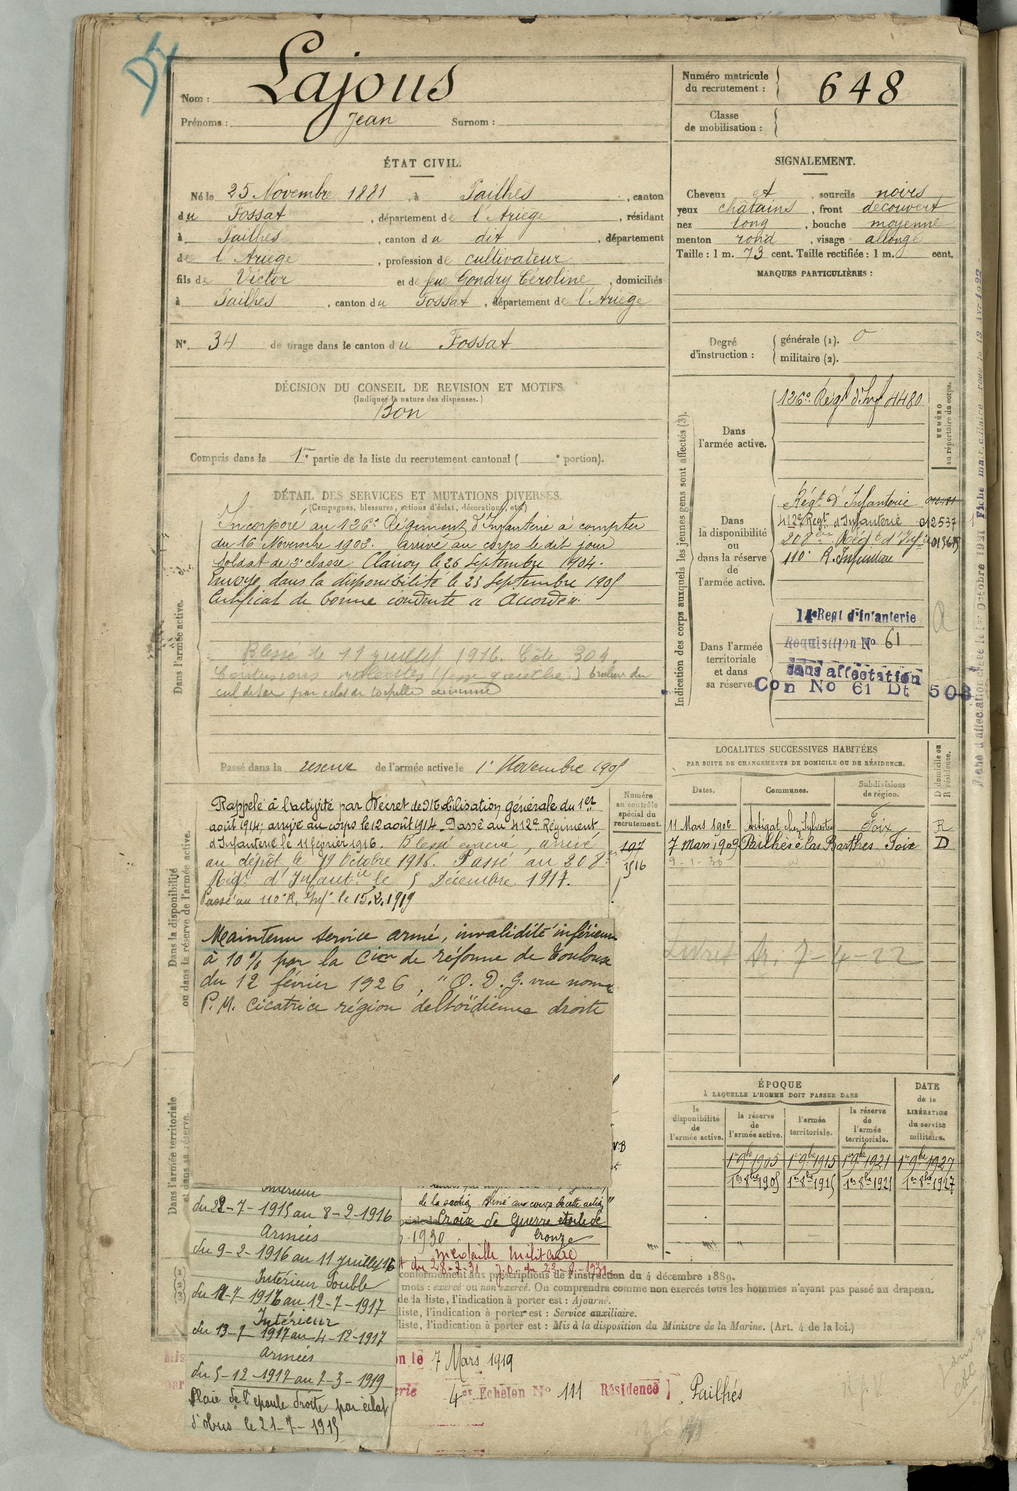 Nom : Lajous
Prénoms : Jean Surnom :
Numéro matricule du recrutement : 648
Classe de mobilisation :
ÉTAT CIVIL.
Né le 25 Novembre 1881, à Pailhès, canton
du Fossat, département de l'Ariège, résidant
à Pailhès, canton du dit, département
de l'Ariège, profession de cultivateur
fils de Victor et de feue Gondry Céroline, domiciliés
à Pailhès, canton du Fossat, département de l'Ariège
N° 34 de tirage dans le canton du Fossat
SIGNALEMENT.
Cheveux et, sourcils noirs
yeux chatains, front découvert
nez long, bouche moyenne
menton rond, visage allongé
Taille : 1 m. 73 cent. Taille rectifiée : 1 m. cent.
MARQUES PARTICULIÈRES :
Degré d'instruction : générale (1). 0
militaire (2).
DÉCISION DU CONSEIL DE REVISION ET MOTIFS.
(Indiquer la nature des dispenses.)
Bon
Compris dans la 1re partie de la liste du recrutement cantonal ( e portion).
DÉTAIL DES SERVICES ET MUTATIONS DIVERSES.
(Campagnes, blessures, actions d'éclat, décorations, etc.)
Dans l'armée active.
Incorporé au 126e Régiment d'Infanterie à compter
du 16 Novembre 1902. arrivé au corps le dit jour
Soldat de 2e classe Clairon le 26 Septembre 1904.
Envoyé dans la disponibilité le 23 Septembre 1905
Certificat de bonne conduite " Accordé ".
Blessé le 11 juillet 1916. Côte 304.
Contusions
Passé dans la réserve de l'armée active le 1er Novembre 1905
Dans la disponibilité ou dans la réserve de l'armée active.
Rappelé à l'activité par Décret de Mobilisation générale du 1er
août 1914; arrivé au corps le 12 août 1914. Passé au 412e Régiment
d'Infanterie le 11 février 1916. Blessé évacué, arrivé
au dépôt le 19 Octobre 1916. Passé au 208e
Régt d'Infantie le 5 Décembre 1917.
Passé au 110e R. Inf. le 15.2.1919
Numéro au contrôle spécial du recrutement.
107
1516
Maintenu service armé, invalidité inférieure
à 10% par la Cion de réforme de Toulouse
du 12 février 1926, "O. D. G. vu nomé
P. M. cicatrice région deltoïdienne droite
Dans l'armée territoriale et dans sa réserve.
Intérieur
du 22-7-1915 au 8-2-1916
Armées
du 9-2-1916 au 11 juillet 16
Intérieur Double
du 12-7-1916 au 12-7-1917
Intérieur
du 13-7-1917 au 4-12-1917
Armées
du 5-12-1917 au 7-3-1919
Plaie de l'épaule droite par éclat
d'obus le 21-7-1915
Croix de Guerre étoile de
bronze
1930
médaille militaire
conformément aux prescriptions de l'instruction du 4 décembre 1889.
mots : exercé ou non exercé. On comprendra comme non exercés tous les hommes n'ayant pas passé au drapeau.
de la liste, l'indication à porter est : Ajourné.
liste, l'indication à porter est : Service auxiliaire.
liste, l'indication à porter est : Mis à la disposition du Ministre de la Marine. (Art. 4 de la loi.)
on le 7 Mars 1919
4e Echelon N° 111 Résidence Pailhés
Indication des corps auxquels les jeunes gens sont affectés (3).
NUMÉRO au répertoire du corps.
Dans l'armée active.
126e Régt d'Inf 4480
Dans la disponibilité ou dans la réserve de l'armée active.
Régt d'Infanterie
412e Régt d'Infanterie 012537
208e Régt d'Inf
110e R. Infanterie
Dans l'armée territoriale et dans sa réserve.
14e Regt d'Infanterie
Réquisition N° 61
sans affectation
Con No 61 Dt 503
LOCALITÉS SUCCESSIVES HABITÉES
PAR SUITE DE CHANGEMENTS DE DOMICILE OU DE RÉSIDENCE.
Dates. Communes. Subdivisions de région. D domicile ou R résidence.
11 Mars 1906 Artigat chez Sylvestre Foix R
7 Mars 1909 Pailhès à las Barthes Foix D
Livret
7-4-22
ÉPOQUE
À LAQUELLE L'HOMME DOIT PASSER DANS
DATE de la LIBÉRATION du service militaire.
la disponibilité de l'armée active.
la réserve de l'armée active.
l'armée territoriale.
la réserve de l'armée territoriale.
1er 9bre 1905 1er 9bre 1915 1er 9bre 1921 1er 9bre 1927
1er 8bre 1905 1er 8bre 1915 1er 8bre 1921 1er 8bre 1927